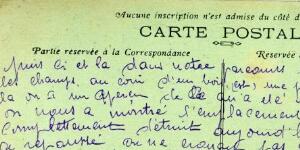 Aucune inscription n'est admise du côté d
CARTE POSTAL
Partie réservée à la Correspondance Réservée
puis ci et là dans notre parcours
les champs, au coin d'un bois est, une p
là on a un aperçu de ce qu'a été
on nous a montré l'emplacement
complètement détruit aujourd'
repoussé on ne connait pas